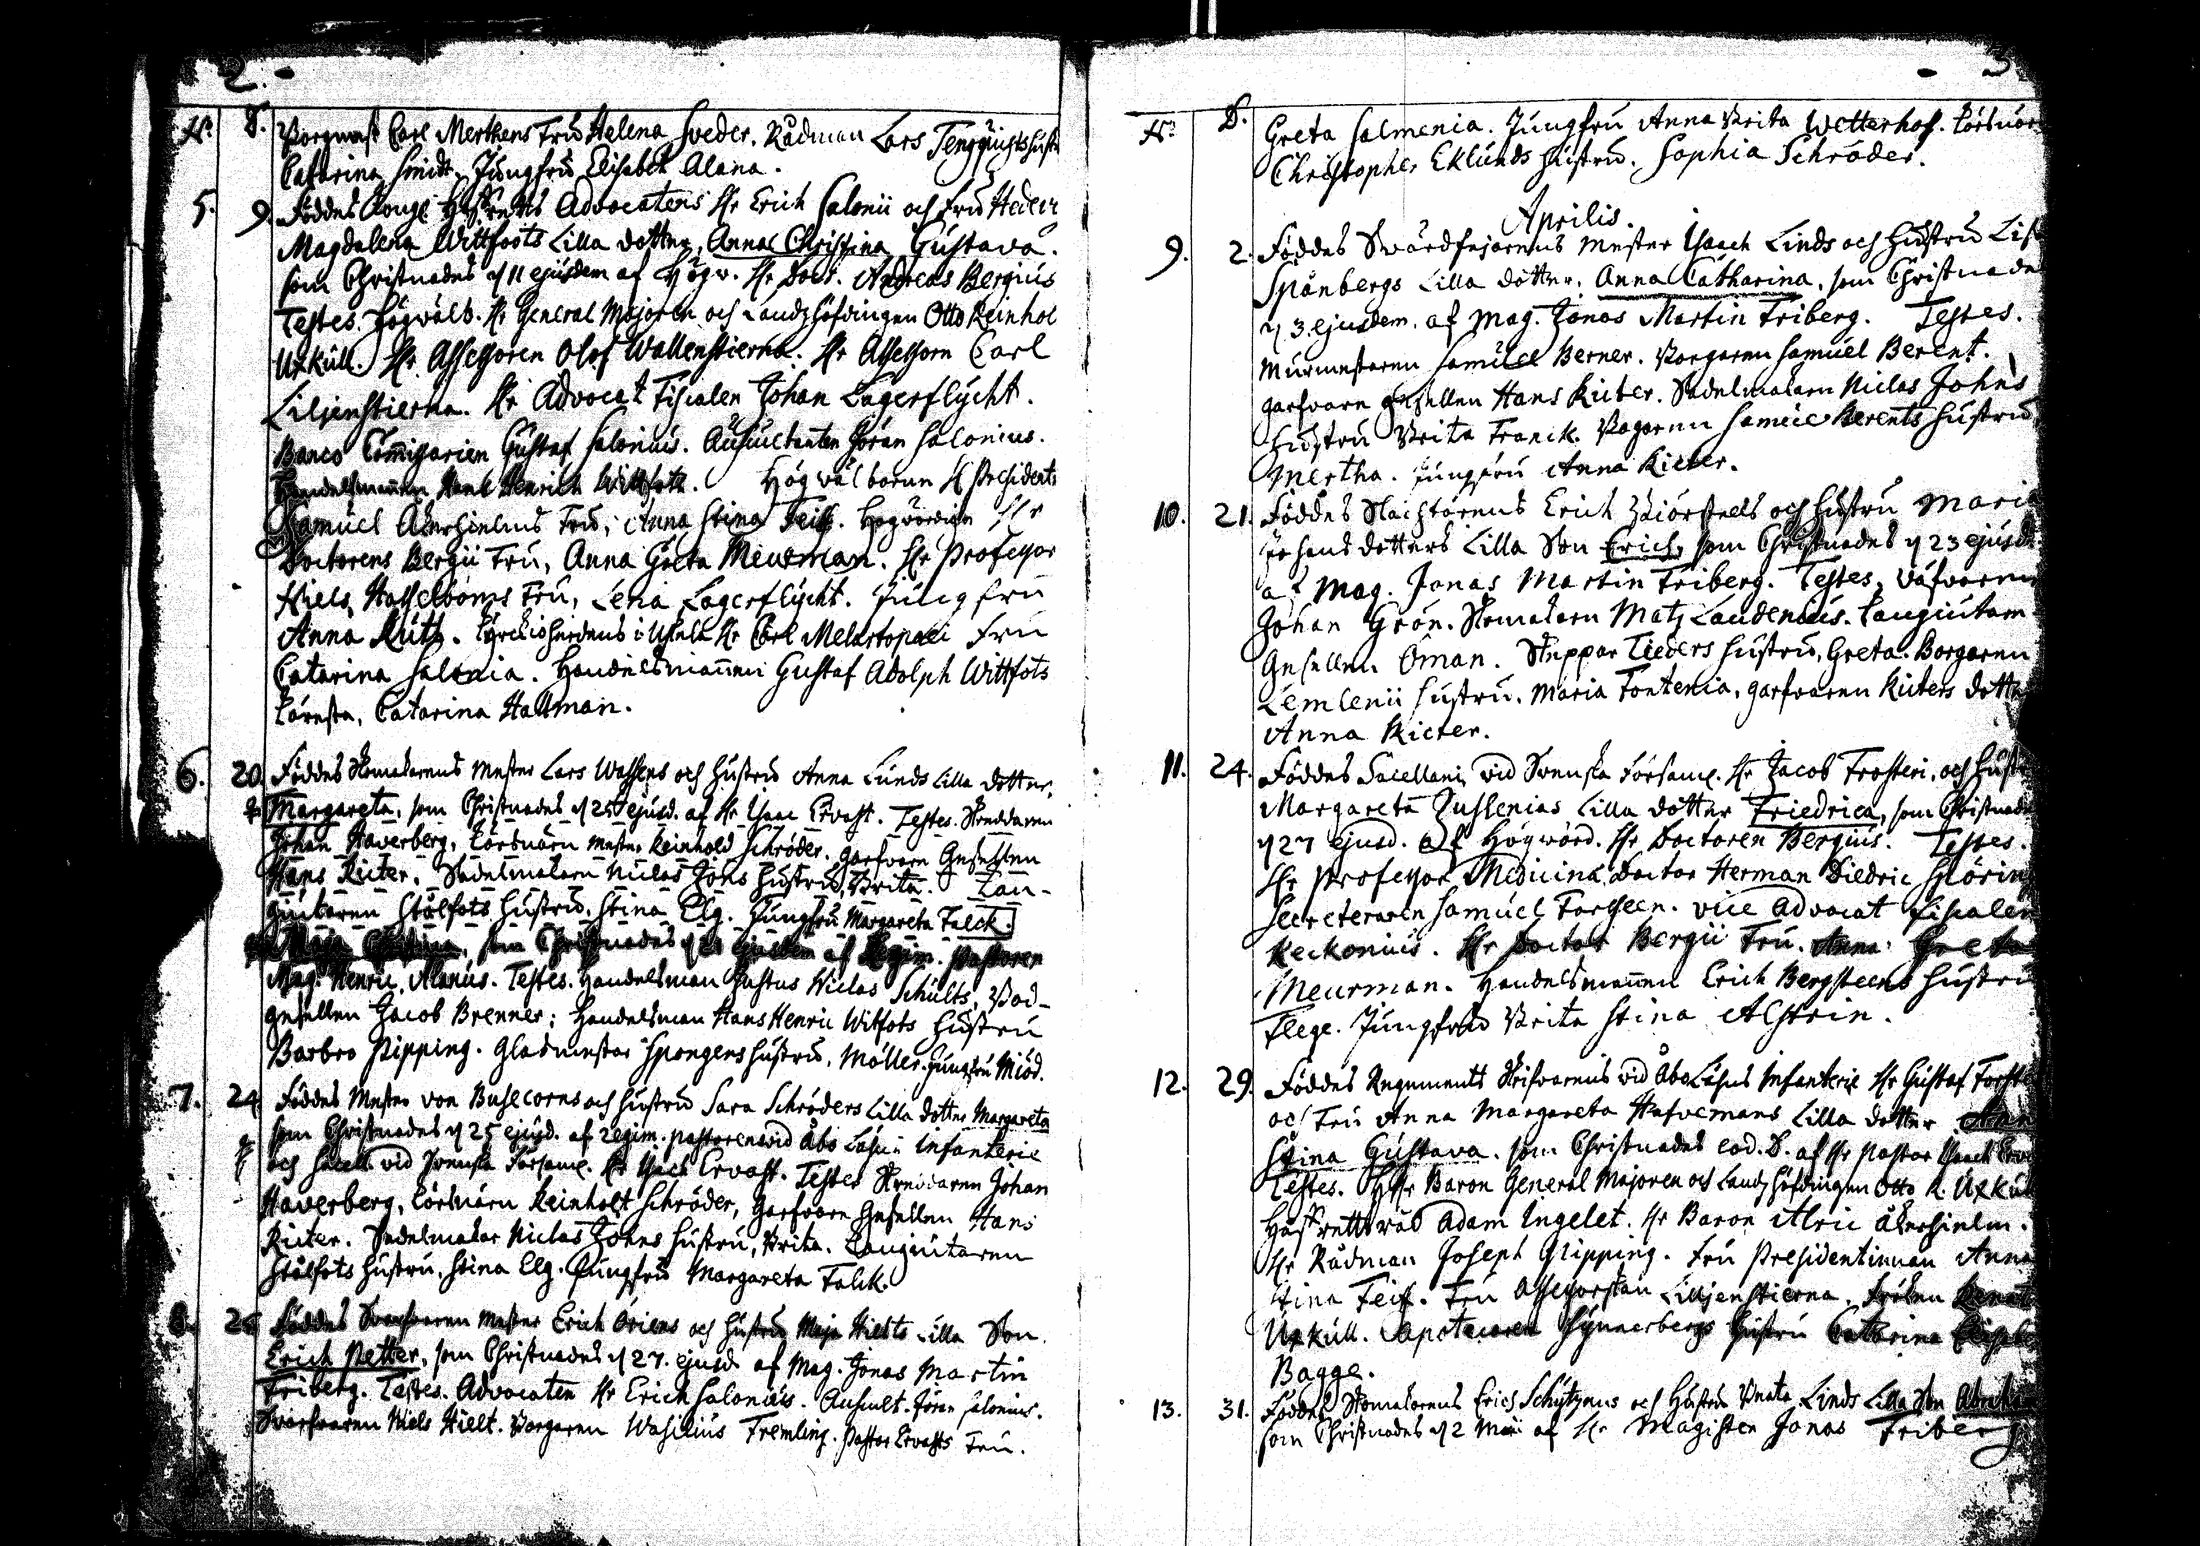 2.
No. D. Borgmäst Carl Merthens Fru Helena Sveder. Rådman Lars Tengquists hustru
Catarina Smidt, Jungfru Elisabet Alana.
5. 9. Föddes Kongl. Hofrettes Advocatens Hr Erich Salonii och Fru Hedevi
Magdalena Wittfoots Lilla dotter, Anna Christina Gustava.
som Christnades d 11 ejusdem af Högw. Hr Doct. Andreas Bergius
Testes. Högwälb. Hr General Majoren och Landzhöfdingen Otto Reinhol
Uxküll. Hr Assessoren Olof Wallenstierna. Hr Assessorn Carl
Liljenstierna. Hr Advocat Fiscalen Johan Lagerflycht.
Banco Commissarien Gustaf Salonius. Auscultanten Jöran Salonius.
Handelsmannen Hans Henrich Wittfoth. Högwälborun H Presidents
Samuel Åkerhielms Fru, Anna Stina Feif. Högwördige Hr
Doctorens Bergii Fru, Anna Greta Meurman. Hr Professor
Niels Hasselboms Fru, Lena Lagerflycht. Jungfru
Anna Rüth. Kyrckioherdens i Uskela Hr Carl Melartopaei Fru
Catarina Salonia. Handelsmannen Gustaf Adolph Wittfots
kiäresta, Catarina Hallman.
6. 20 Föddes Skomakarens Mester Lars Wassens och hustru Anna Lunds Lilla dotter,
Margareta, som Christnades d 25 ejusd. af Hr Isaac Ervast. Testes. Skreddaren
Johan Haverberg, Körsnärn Mester Reinhold Schröder. garfvare Gesellen
Hans Riiter. Sadelmakarn Niclas Jons hustru, Brita.
Stålfots hustru, Stina Elg. Jungfru Margareta Falck.
som Christnades af Regim. Pastoren
Mag. Henric Alanus. Testes. Handelsman Justus Niclas Schults,
gesellen Jacob Brenner; Handelsman Hans Henric Witfots Hustru
Barbro Pipping. Glasmestar Spongens hustru, Möller. Jungfru Miöd.
7. 24 Föddes Mester von Busecorns och hustru Sara Schröders Lilla dotter Margareta
som Christnades d 25 ejusd. af Regim. pastoren vid Åbo Läns Infanterie
och Sacell. vid Svenska Församl. Hr Isach Ervast. Testes Skreddaren Johan
Haverberg, Körsnärn Reinholt Schröder, Garfvare Gesellen Hans
Riiter. Sadelmakar Niclas Johns hustru, Brita.
Stålfots hustru, Stina Elg. Jungfru Margareta Falck.
8. 26 Föddes Svarfvaren Mester Erich Öriens och hustru Maja Hielts Lilla Son
Erich Petter, som Christnades d 27. ejusd af Mag. Jonas Martin
Friberg. Testes. Advocaten Hr Erich Salonius. Auscult. Jöran Salonius.
Svarfvaren Niels Hielt. Borgaren Wasilius Fremling. Pastor Ervasts Fru.
3
No. D. Greta Salmenia. Jungfru Anna Brita Wetterhof. Körsnär
Christopher Eklunds hustru, Sophia Schröder.
Aprilis.
9. 2. Föddes Swärdfejarens Mester Isaach Linds och hustru Lis
Spånbergs Lilla dotter, Anna Catharina, som Christnade
d 3 ejusdem. af Mag. Jonas Martin Friberg. Testes.
Murmestaren Samuel Berner. Borgaren Samuel Berent.
garfvare gesellen Hans Riiter. Sadelmakarn Niclas Johns
hustru Brita Franck. Bogaren Samuel Berents hustru
Mertha. Jungfru Anna Rieter.
10. 21. Föddes Slachtarens Erich och hustru Mari
Johans dotters Lilla Son Erich, som Christnades d 23 ejusd
af Mag. Jonas Martin Friberg. Testes, Väfvaren
Johan Grön. Skomakarn Matz Laudenius.
Gesellen Öman. Skeppar Tieders hustru, Greta. Borgaren
Lemlenii hustru. Maria Fontenia, garfvaren Riiters dotte
Anna Rieter.
11. 24. Föddes Sacellani vid Svenska Församl. Hr Jacob Frosteri, och hust
Margareta Juslenias Lilla dotter Friedrica, som Christnade
d 27 ejusd. af Högwörd. Hr Doctoren Bergius. Testes.
Hr Professor Medicinä, Doctor Herman Diedric Spöring
Secreteraren Samuel Forseen. vice Advocat Fiscalen
Reckonius. Hr Doctor Bergii Fru. Anna Greta
Meurman. Handelsmannen Erich Bergsteens hustru
Flege. Jungfru Brita Stina Alstrin.
12. 29. Föddes Regements Skrifvarens vid Åbo Läns Infanterie Hr Gustaf Forst
och Fru Anna Margareta Hafvemans Lilla dotter Ann
Stina Gustava. som Christnades eod. D. af Hr Pastor Isaach Erv
Testes. H Hr Baron General Majoren och Landzhöfdingen Otto R. Uxkül
Hofrettsråd Adam Ingelet. Hr Baron Alric Åkerhielm.
Hr Rådman Joseph Pipping. Fru Presidentinnan Anna
Stina Feif. Fru Assessorskan Lilljenstierna. Fröken Renat
Uxküll. Apotecaren Synnerbergs hustru Catharina Elisab
Bagge.
13. 31. Föddes Skomakarens Erics Schützgens och Hustru Beata Linds Lilla Son Abraham
som Christnades d 2 Maii af Hr Magisten Jonas Friberg